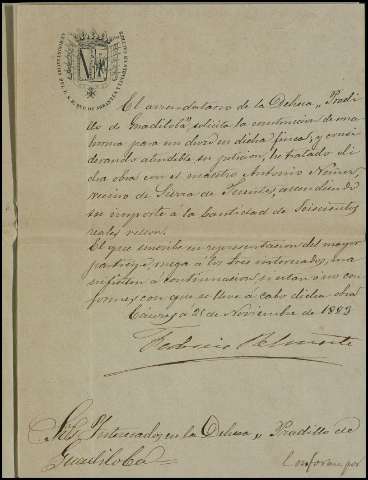 El arrendatario de la Dehesa "Pradi-
llo de Guadiloba" solicita la construcción de una
para un en dicha finca, y consi-
derando atendible su petición, he tratado di-
cha obra con el maestro Antonio
vecino de Sierra de Fuentes, ascendiendo
su importe à la cantidad de Seiscientos
reales vellon.
El que suscribe en representación del mayor
participe, ruega à los Sres interesados, ma-
nifiesten à continuacion, si estan ó no con-
formes con que se lleve à cabo dicha obra
Cáceres 21 de Noviembre de 1883
Federico
Sres Interesados en la Dehesa "Pradillo de
Guadiloba"
Conforme por